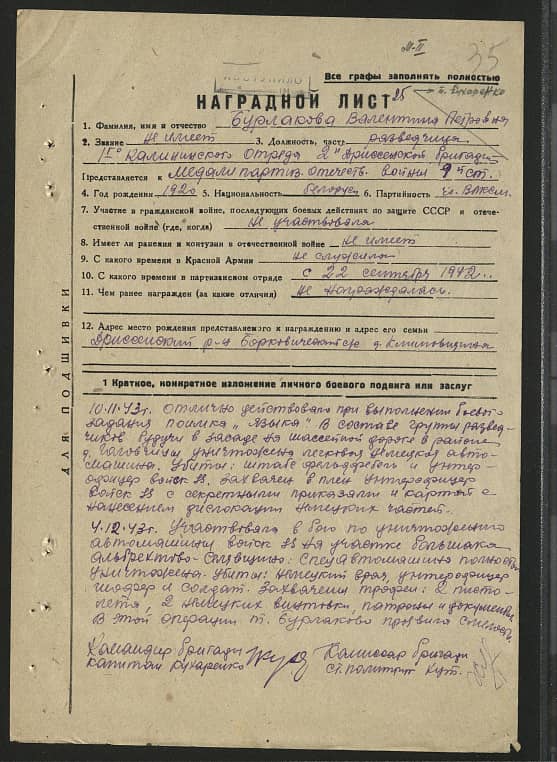 М-II
35
ПОСТУПИЛО
Все графы заполнять полностью
т. Кухаренко
НАГРАДНОЙ ЛИСТ 25
1. Фамилия, имя и отчество Бурлакова Валентина Петровна
2. Звание Не имеет 3. Должность, часть разведчица
1го Калининского Отряда 2й Дриссенской бригады
Представляется к Медали партиз. отечеств. войны 1й ст.
4. Год рождения 1920 5. Национальность белорус. 6. Партийность чл. ВЛКСМ.
7. Участие в гражданской войне, последующих боевых действиях по защите СССР и отече-
ственной войне (где, когда) Не участвовала
8. Имеет ли ранения и контузии в отечественной войне Не имеет
9. С какого времени в Красной Армии Не служила
10. С какого времени в партизанском отряде с 22 сентября 1942..
11. Чем ранее награжден (за какие отличия) Не награждалась.
12. Адрес место рождения представляемого к награждению и адрес его семьи
Дриссенский р-н Борковичский с/с д. Климовщина
ДЛЯ ПОДШИВКИ
1 Краткое, конкретное изложение личного боевого подвига или заслуг
10.11.43г. отлично действовала при выполнении боевого
задания поимка „языка" в составе группы развед-
чиков будучи в засаде на шоссейной дороге в районе
д. уничтожена легковая немецкая авто-
машина. Убиты: штабс фельдфебель и унтер-
офицер войск SS. Захвачен в плен унтерофицер
войск SS с секретными приказами и картой с
нанесением дислокации немецких частей.
4.12.43г. Участвовала в бою по уничтожению
автомашины войск SS на участке большака
Альбрехтово- Спецавтомашина полностью
уничтожена. Убиты: немецкий врач, унтерофицер
шофер и солдат. Захвачены трофеи: 2 писто-
лета, 2 немецких винтовки, патроны и документы
В этой операции т. Бурлакова проявила
Командир бригады Комиссар бригады
капитан Кухаренко ст. политрук